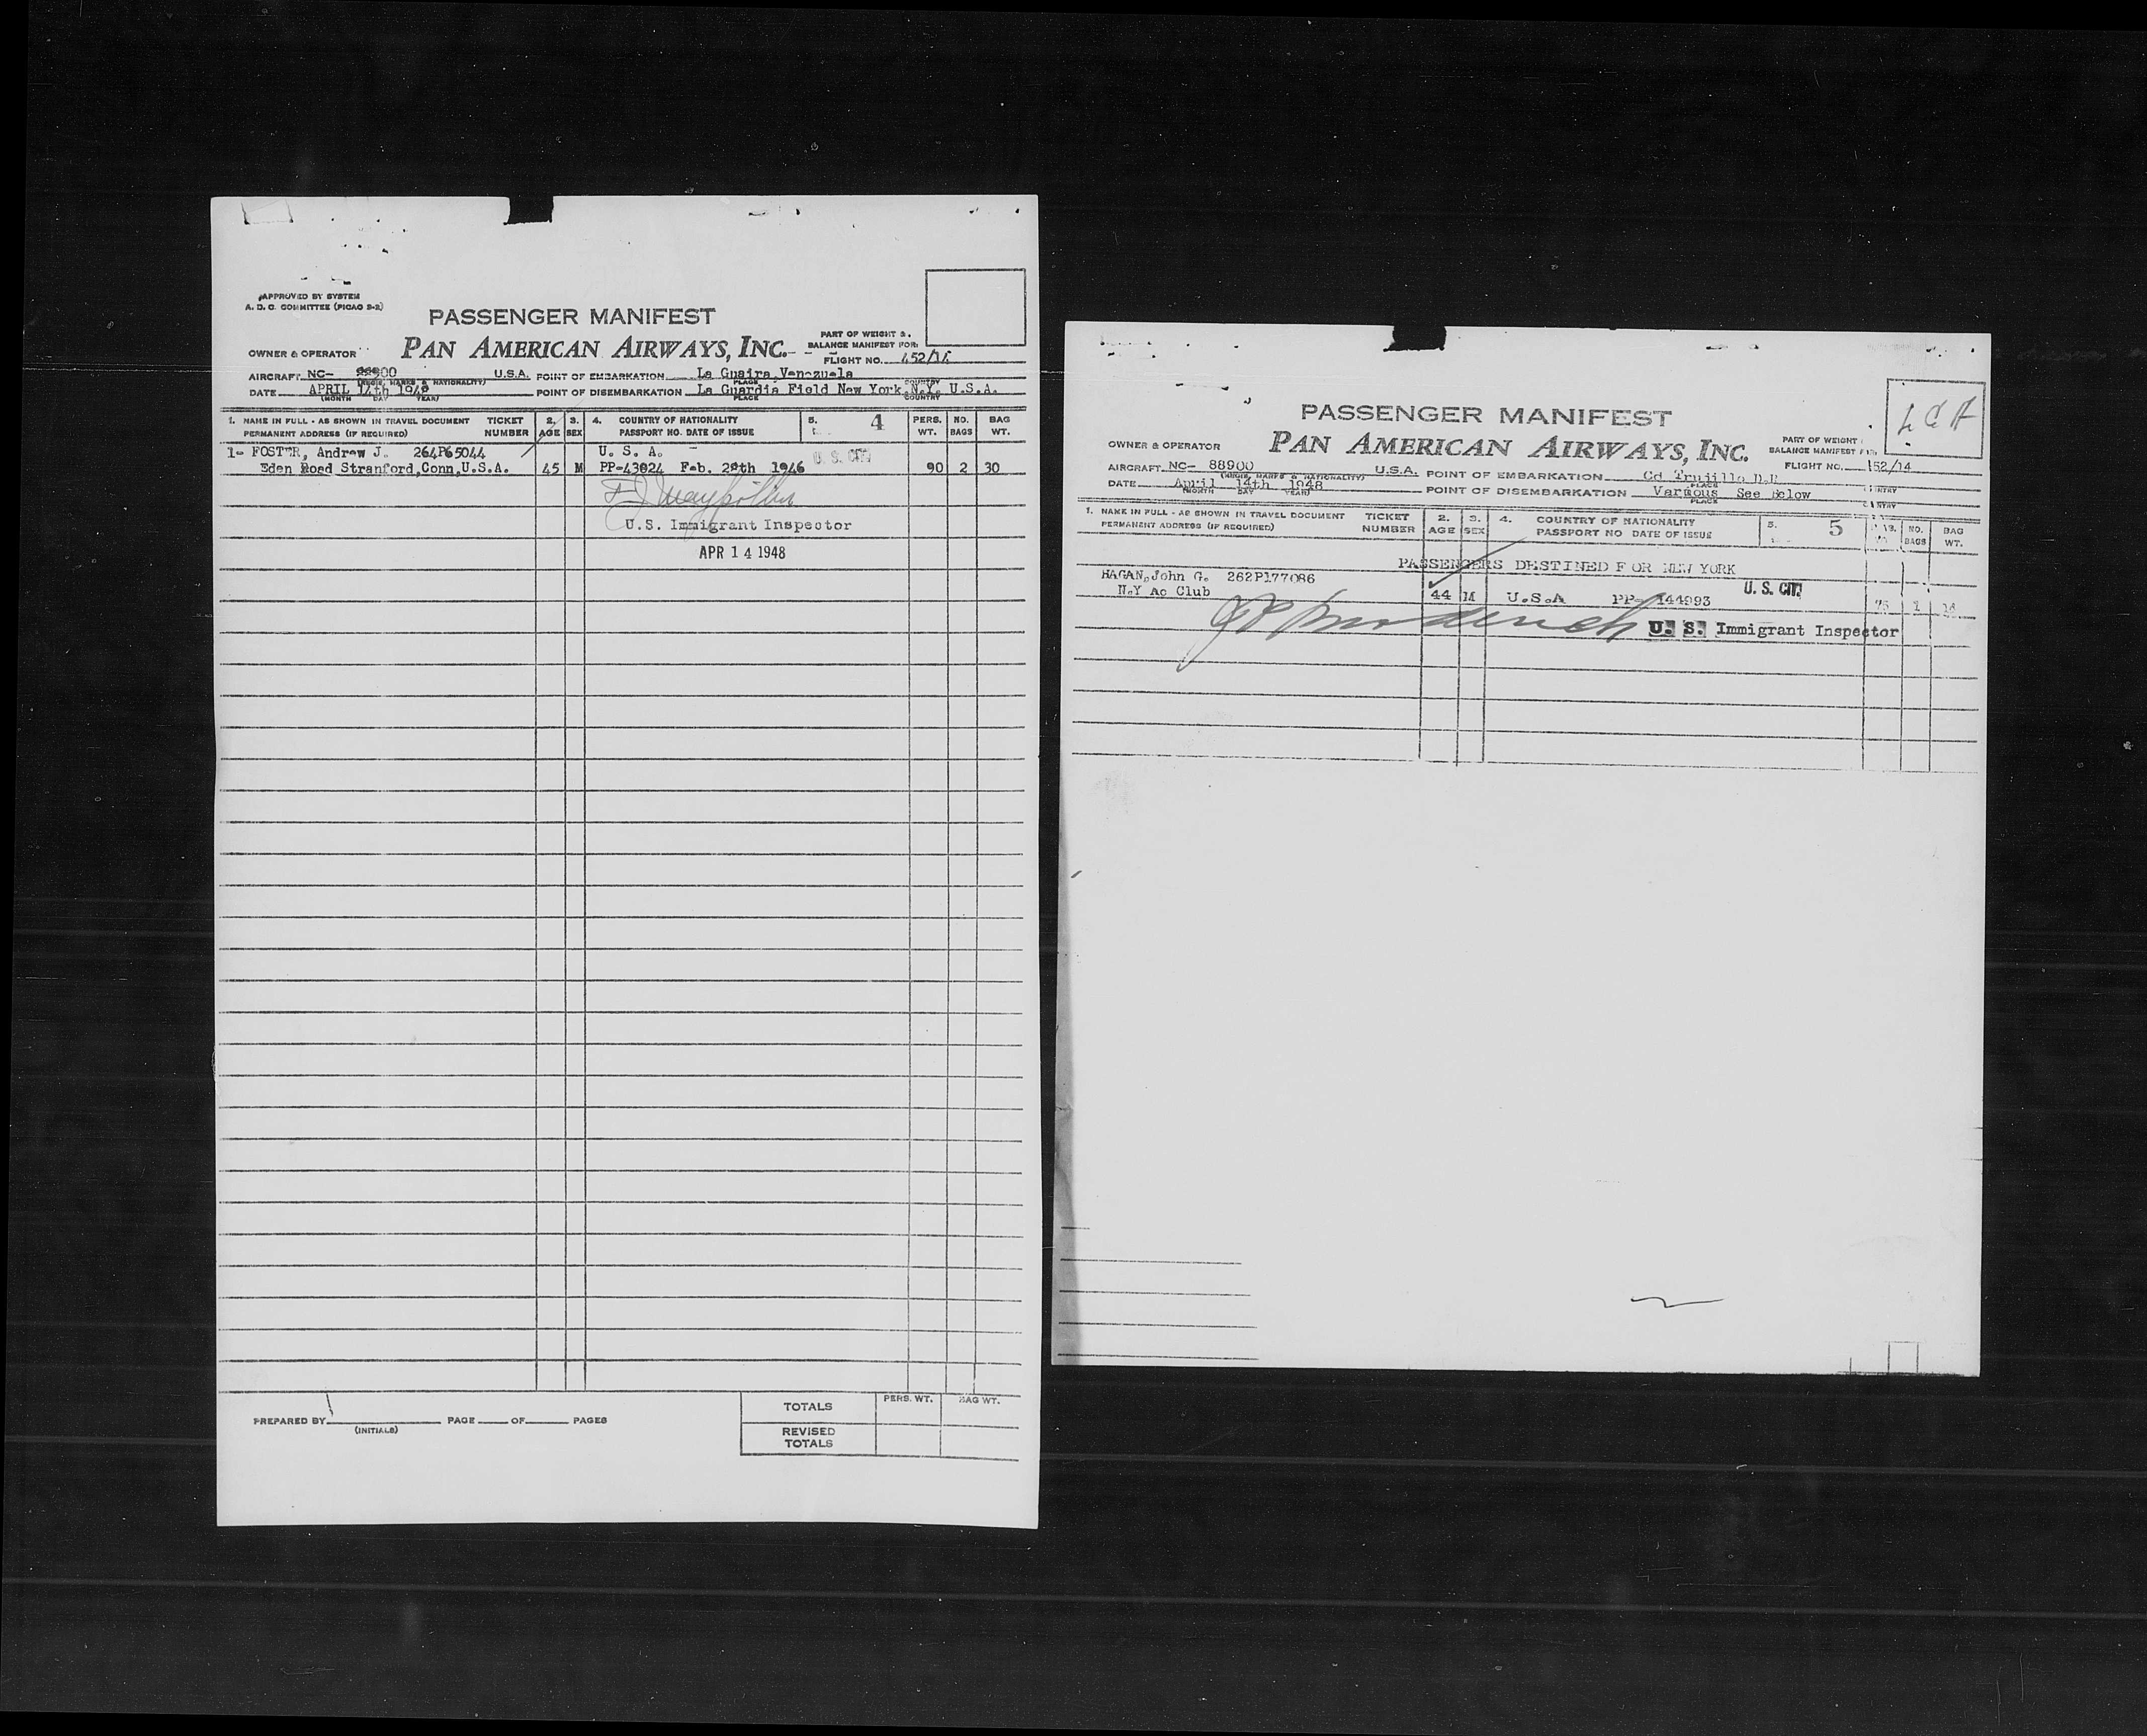 APPROVED BY SYSTEM
A. D. C. COMMITTEE (PICAO 2-2)
PASSENGER MANIFEST
OWNER & OPERATOR PAN AMERICAN AIRWAYS, INC.
PART OF WEIGHT &
BALANCE MANIFEST FOR:
FLIGHT NO. 452/14
AIRCRAFT NC- 88900 U.S.A. POINT OF EMBARKATION La Guaira Venezuela
(REGIS. MARKS & NATIONALITY) PLACE COUNTRY
DATE APRIL 14th 1948 POINT OF DISEMBARKATION La Guardia Field New York, N.Y. U.S.A.
(MONTH DAY YEAR) PLACE COUNTRY
1. NAME IN FULL - AS SHOWN IN TRAVEL DOCUMENT TICKET 2. 3. 4. COUNTRY OF NATIONALITY 5. 4 PERS. NO. BAG
PERMANENT ADDRESS (IF REQUIRED) NUMBER AGE SEX PASSPORT NO. DATE OF ISSUE WT. BAGS WT.
1- FOSTER, Andrew J. 264P65044 U. S. A. U. S. CIT
Eden Road Stranford, Conn, U.S.A. 45 M PP-43024 Feb. 28th 1946 90 2 30
U.S. Immigrant Inspector
APR 14 1948
PREPARED BY PAGE OF PAGES
(INITIALS)
TOTALS PERS. WT. BAG WT.
REVISED
TOTALS
L G A
PASSENGER MANIFEST
OWNER & OPERATOR PAN AMERICAN AIRWAYS, INC.
PART OF WEIGHT
BALANCE MANIFEST FOR
FLIGHT NO. 452/14
AIRCRAFT NC- 88900 U.S.A. POINT OF EMBARKATION Cd Trujillo D.R.
(REGIS. MARKS & NATIONALITY) PLACE
DATE April 14th 1948 POINT OF DISEMBARKATION Various See Below
(MONTH DAY YEAR) PLACE COUNTRY
1. NAME IN FULL - AS SHOWN IN TRAVEL DOCUMENT TICKET 2. 3. 4. COUNTRY OF NATIONALITY 5. 5 NO. BAG
PERMANENT ADDRESS (IF REQUIRED) NUMBER AGE SEX PASSPORT NO DATE OF ISSUE BAGS WT.
PASSENGERS DESTINED FOR NEW YORK
HAGAN, John G. 262P177086
N.Y Ac Club 44 M U.S.A PP- 144993 U. S. CIT 75 1
U. S. Immigrant Inspector